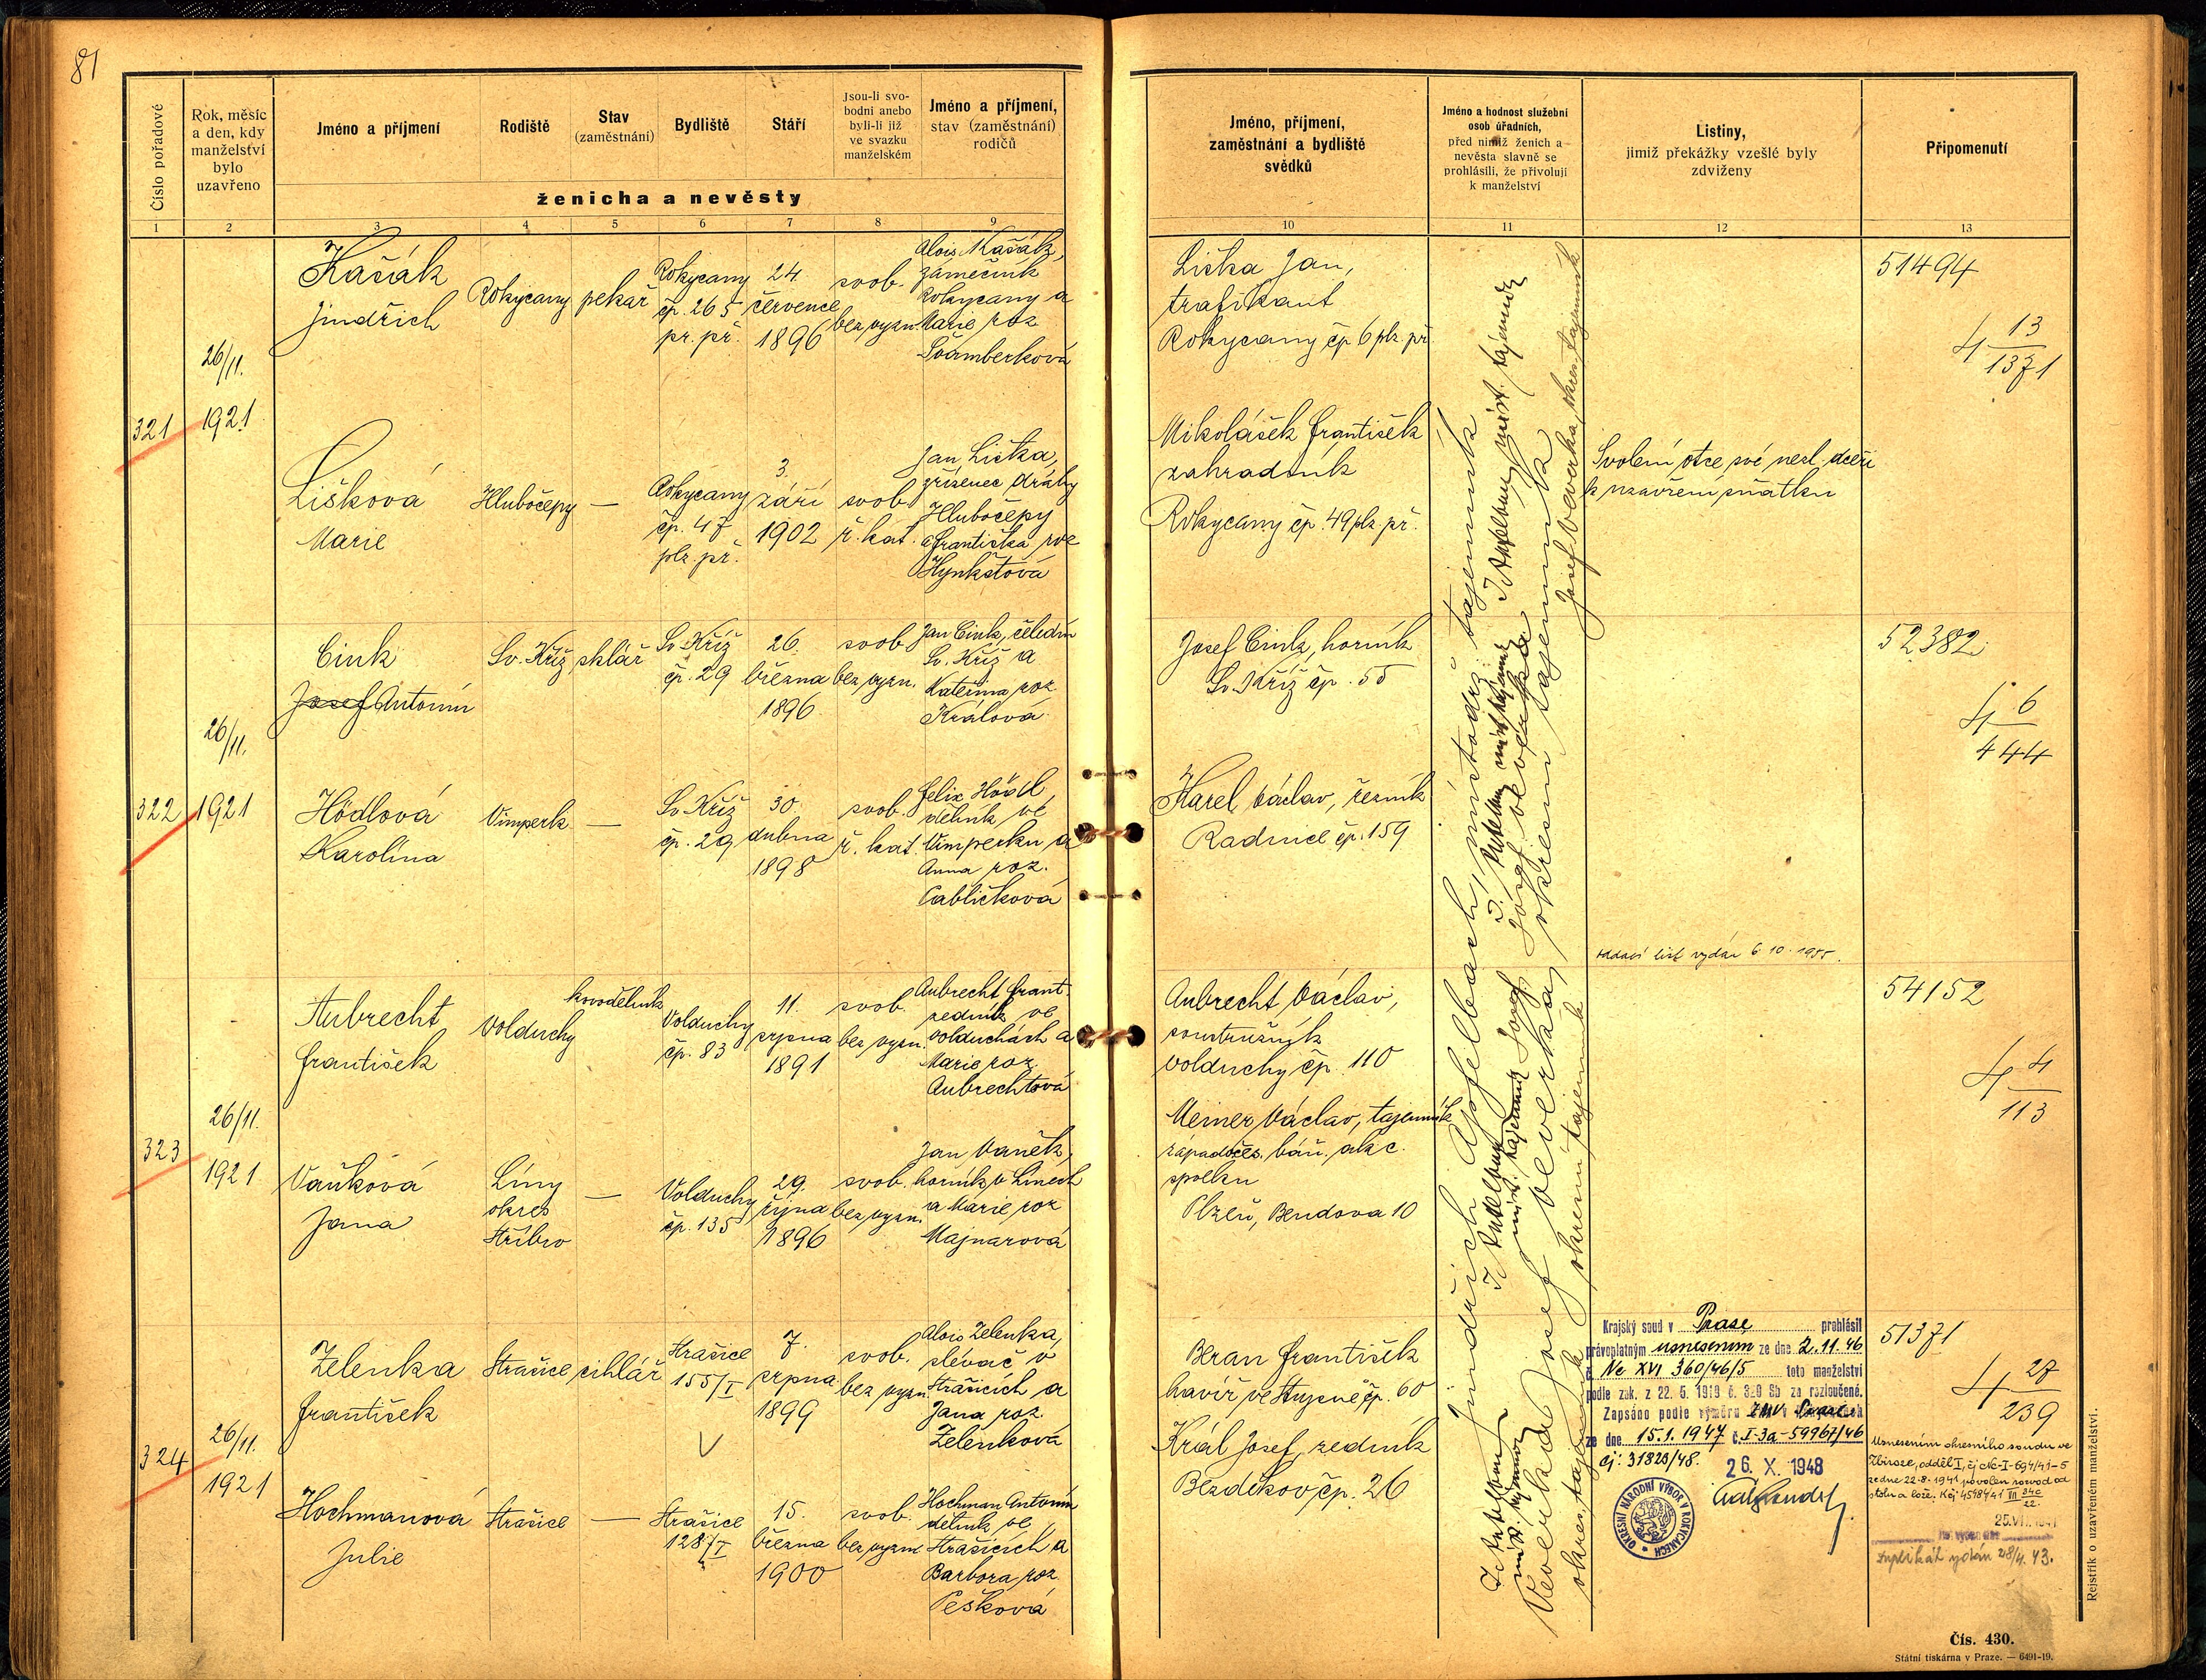 81
Číslo pořadové
Rok, měsíc
a den, kdy
manželství
bylo
uzavřeno
Jméno a příjmení
Rodiště
Stav
(zaměstnání)
Bydliště
Stáří
Jsou-li svo-
bodni anebo
byli-li již
ve svazku
manželském
Jméno a příjmení,
stav (zaměstnání)
rodičů
ženicha a nevěsty
1 2 3 4 5 6 7 8 9
Jméno, příjmení,
zaměstnání a bydliště
svědků
Jméno a hodnost služební
osob úřadních,
před nimiž ženich a
nevěsta slavně se
prohlásili, že přivolují
k manželství
Listiny,
jimiž překážky vzešlé byly
zdviženy
Připomenutí
10 11 12 13
321
26/11.
1921
Kašák
Jindřich
Rokycany
pekař
Rokycany
čp. 265
pr. př.
24.
července
1896
svob.
bez vyzn.
Alois Kašák,
zámečník
Rokycany a
Marie roz.
Švamberková
Lišková
Marie
Hlubočepy
—
Rokycany
čp. 47
plz. př.
3.
září
1902
svob.
ř. kat.
Jan Liška,
zřízenec dráhy
Hlubočepy
a Františka roz
Hynkštová
Liška Jan,
trafikant
Rokycany čp 6 plz. př.
Mikolášek František
zahradník
Rokycany čp. 49 plz. př.
Svolení otce své nezl. dceři
k uzavření sňatku
51494
4 13
1371
322
26/11.
1921
Cink
Josef Antonín
Sv. Kříž
sklář
Sv. Kříž
čp. 29
26.
března
1896
svob.
bez vyzn.
Jan Cink, čeledín
Sv. Kříž a
Kateřina roz.
Králová
Hödlová
Karolina
Vimperk
—
Sv. Kříž
čp. 29
30.
dubna
1898
svob.
ř. kat.
Felix Hödl,
dělník ve
Vimperku a
Anna roz.
Cablíčková
Josef Cink, horník
Sv. Kříž čp. 55
Karel Václav, řezník
Radnice čp. 159
oddací list vydán 6.10.1955.
52382
4 6
444
323
26/11.
1921
Aubrecht
František
Volduchy
kovodělník
Volduchy
čp. 83
11.
srpna
1891
svob.
bez vyzn.
Aubrecht Frant.
zedník ve
Volduchách a
Marie roz
Aubrechtová
Vaňková
Jana
Líny
okres
Stříbro
—
Volduchy
čp. 135
29.
října
1896
svob.
bez vyzn.
Jan Vaněk,
horník v Línech
a Marie roz
Majnarová
Aubrecht Václav,
soustružník
Volduchy čp. 110
Meiner Václav, tajemník
západočes. báň. akc.
spolku
Plzeň, Bendova 10
54152
4 4
113
324
26/11.
1921
Zelenka
František
Strašice
cihlář
Strašice
155/I
7.
srpna
1899
svob.
bez vyzn.
Alois Zelenka,
slévač v
Strašicích a
Jana roz.
Zelenková
Hochmanová
Julie
Strašice
—
Strašice
128/I
15.
března
1900
svob.
bez vyzn.
Hochman Antonín
dělník ve
Strašicích a
Barbora roz.
Pešková
Beran František
havíř ve Stupně čp. 60
Král Josef, zedník
Bezděkov čp. 26
Jindřich Apfelbach, místodrž. tajemník
Josef Veverka, okresní tajemník
Krajský soud v Praze prohlásil
právoplatným usnesením ze dne 2.11.46
č. Nc XVI 360/46/5 toto manželství
podle zák. z 22. 5. 1919 č. 320 Sb za rozloučené.
Zapsáno podle výměru ZNV v Praze
ze dne 15.1.1947 č. I-3a-59967/46
čj: 31823/48.
26. X. 1948
OKRESNÍ NÁRODNÍ VÝBOR V ROKYCANECH
51371
4 27
239
Usnesením okresního soudu ve
Zbiroze, odděl I, čj Nc-I-694/41-5
ze dne 22.8.1941 povolen rozvod od
stolu a lože.
duplikát vydán 28/4. 43.
Rejstřík o uzavřeném manželství.
Čís. 430.
Státní tiskárna v Praze. — 6491-19.